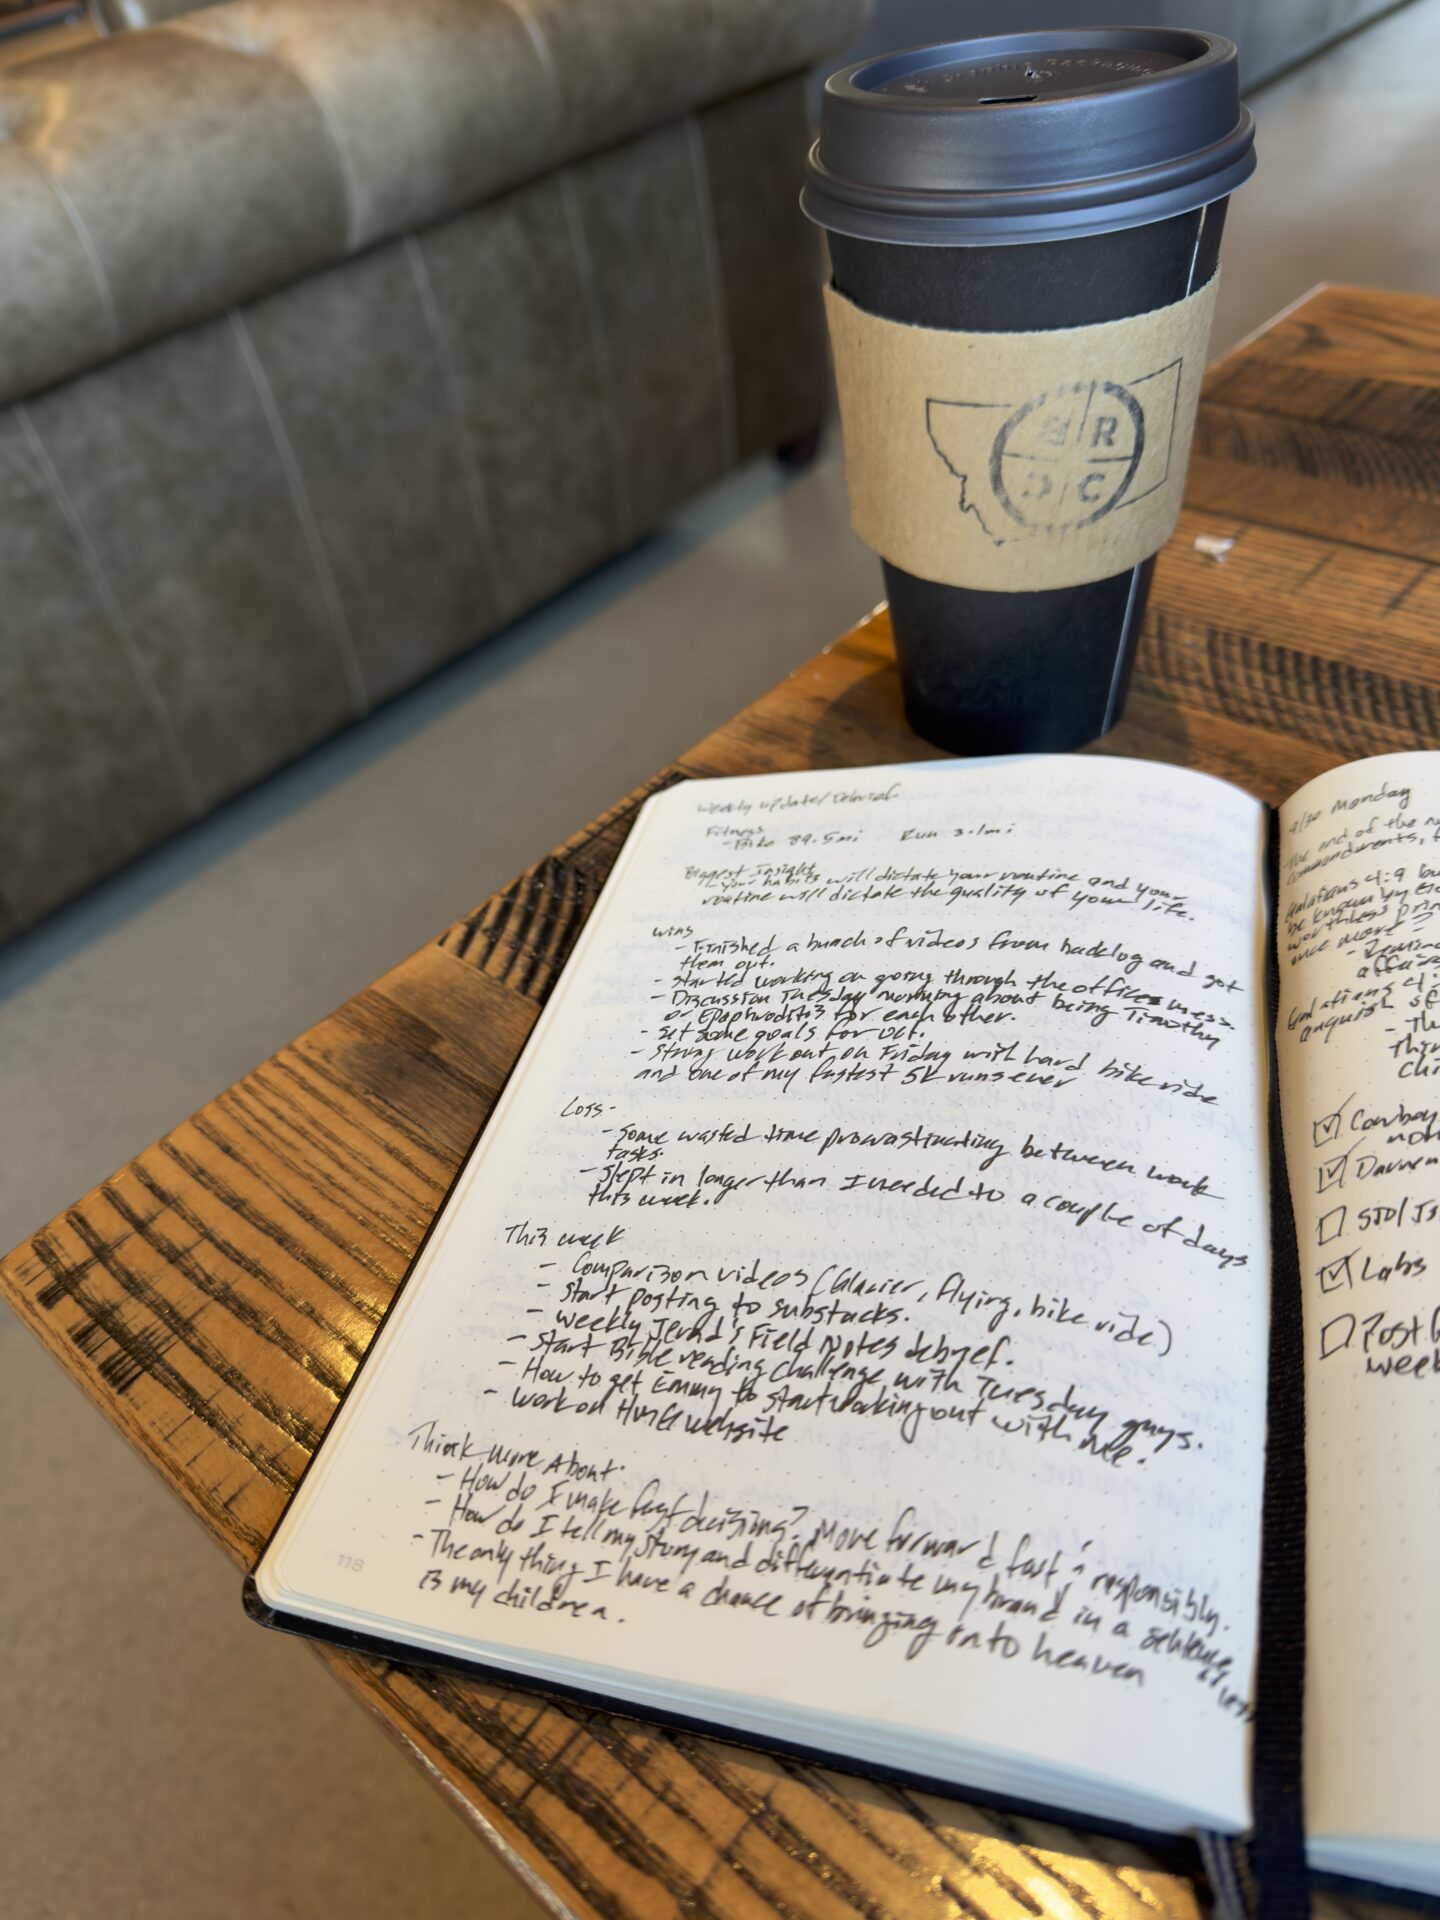 R
C
weekly update/Debrief
Fitness
- Bike 89.5mi Run 3.1mi
Biggest Insight
- Your habits will dictate your routine and your
routine will dictate the quality of your life.
wins
- Finished a bunch of videos from backlog and got
them out.
- started working on going through the offices mess.
- Discussion Tuesday morning about being Timothy
or Epaphroditis for each other.
- set some goals for Oct.
- strong work out on Friday with hard bike ride
and one of my fastest 5k runs ever
Loss-
- Some wasted time procrastinating between work
tasks.
- Slept in longer than I needed to a couple of days
this week.
This week
- Comparison videos (Glacier, flying, bike ride)
- Start posting to substacks.
- Weekly Jerad's Field Notes debrief.
- Start Bible reading challenge with Tuesday guys.
- How to get Emmy to start working out with me.
- Work on website
Think more About.
- How do I make fast decisions? Move forward fast & responsibly.
- How do I tell my story and differentiate my brand in a sentence
- The only thing I have a chance of bringing onto heaven
is my children.
118
9/30 Monday
The end of the
commandments, f
Galations 4:9 bu
be known by
worthless prin
once more?
Galations 4:
anguish of
- Th
thin
chi
Cowboy
Darren
Labs
Post
week